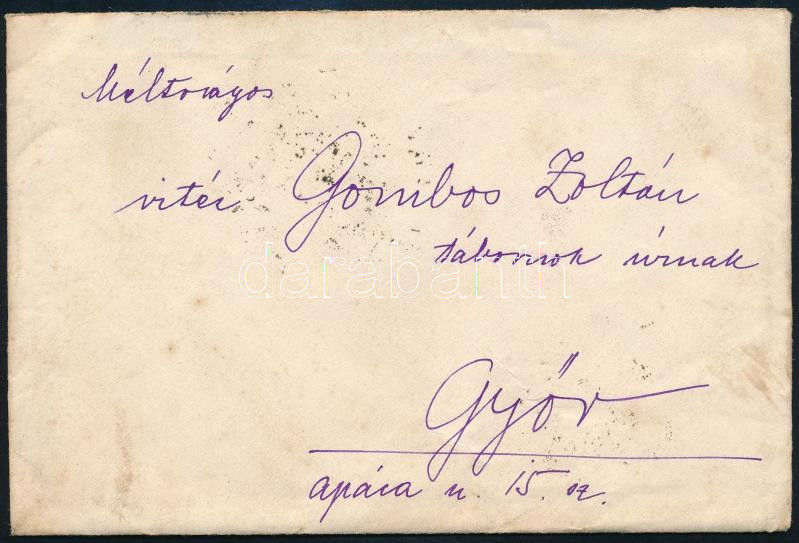 Méltóságos
vitéz Gombos Zoltán
tábornok úrnak
darabanth
Győr
apáca u. 15. sz.